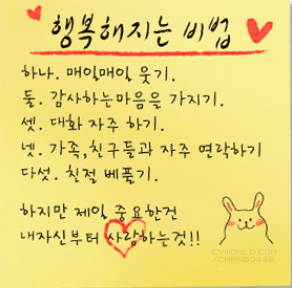 행복해지는 비법
하나. 매일매일 웃기.
둘. 감사하는마음을 가지기.
셋. 대화 자주 하기.
넷. 가족,친구들과 자주 연락하기
다섯. 친절 베풀기.
하지만 제일 중요한건
내자신부터 사랑하는것!!
CYWORLD.COM
/CHANGO448